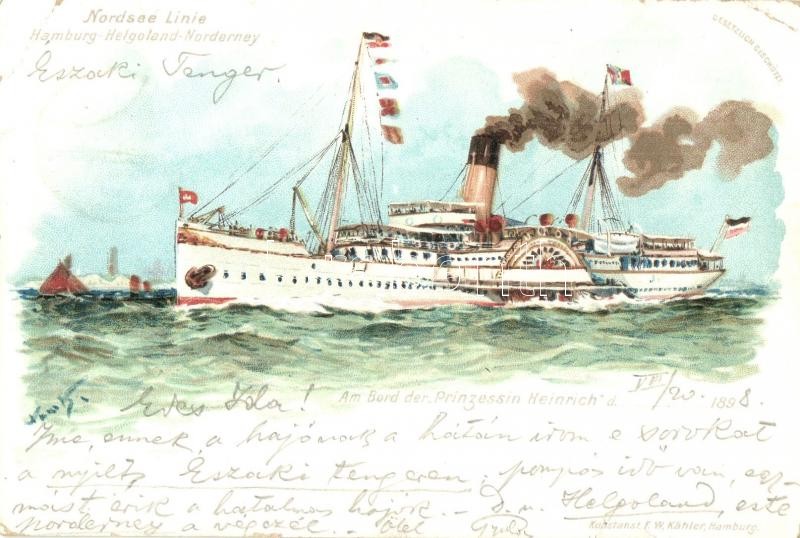 Nordsee Linie
Hamburg-Helgoland-Norderney
GESETZLICH GESCHÜTZT
Északi Tenger.
Am Bord der „Prinzessin Heinrich" d. VIII/20. 1898.
Edes Ida!
Ime, ennek a hajónak a hátán irom e sorokat
a nyilt, Északi tengeren; pompás idő van, egy-
mást érik a hatalmas hajók. – D. u. Helgoland, este
Norderney a végcél. – Ölel Gyula
Kunstanst. F. W. Kähler, Hamburg.